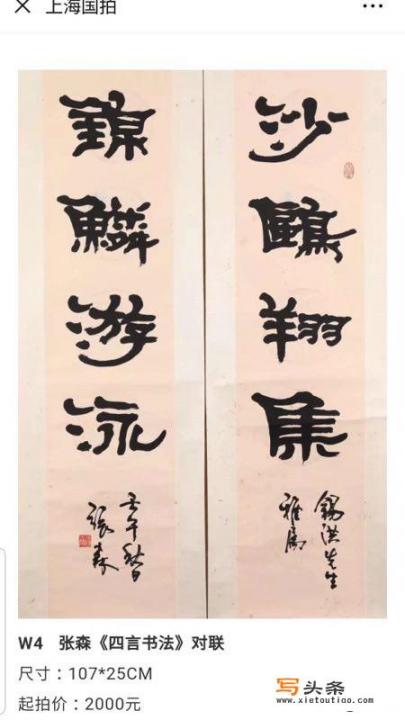 上海国拍
沙鷗翔集
錫洪先生
雅属
錦鱗游泳
壬午秋日
張森
W4 张森《四言书法》对联
尺寸：107*25CM
起拍价：2000元
写头条
www.xietoutiao.com